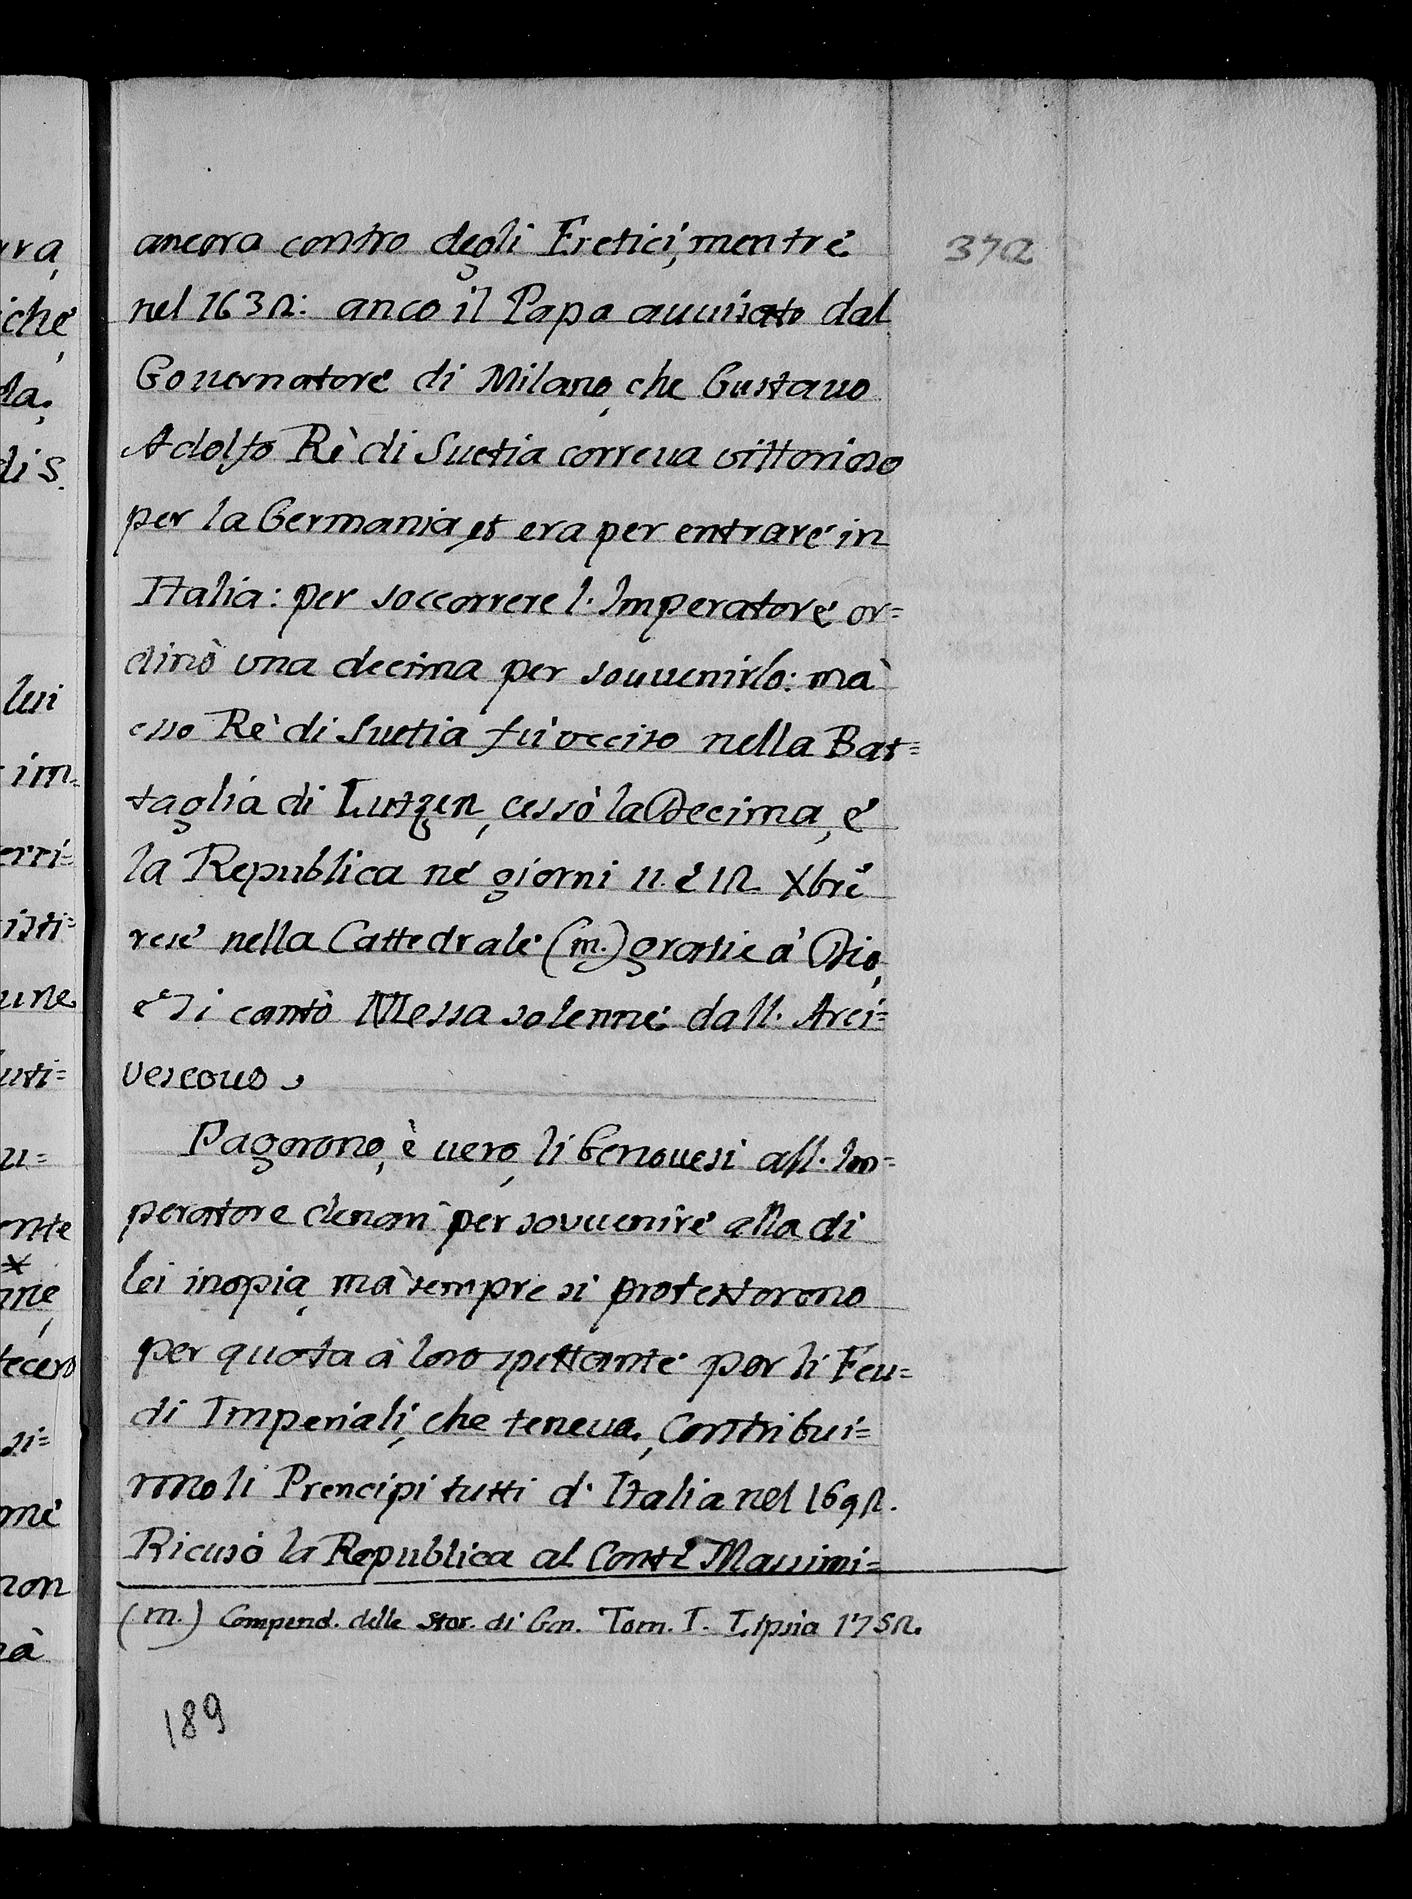 ancora contro degli Eretici, mentre
372
nel 1632: anco il Papa auuisato dal
Gouernatore di Milano, che Gustauo
Adolfo Rè di Suetia correua vittorioso
per la Germania, et era per entrare in
Italia: per soccorrere l' Imperatore or=
dinò una decima per souuenirlo: mà
esso Rè di Suetia fù occiso nella Bat=
taglia di Lutzen, cessò la Decima, e
la Republica ne' giorni 11. e 12 Xbre
rese nella Cattedrale (m.) gratie à Dio,
e si cantò Messa solenne dall' Arci=
uescouo.
Pagorono, è uero, li Genouesi all' Im=
peratore denari per souuenire alla di
lei inopia, mà sempre si protestorono
per quota à loro spettante per li Feu=
di Imperiali, che teneua. Contribui=
rno li Prencipi tutti d' Italia nel 1692.
Ricusò la Republica al Conte Massimi=
(m.) Compend. delle Stor. di Gen. Tom. I. Lipsia 1752.
189